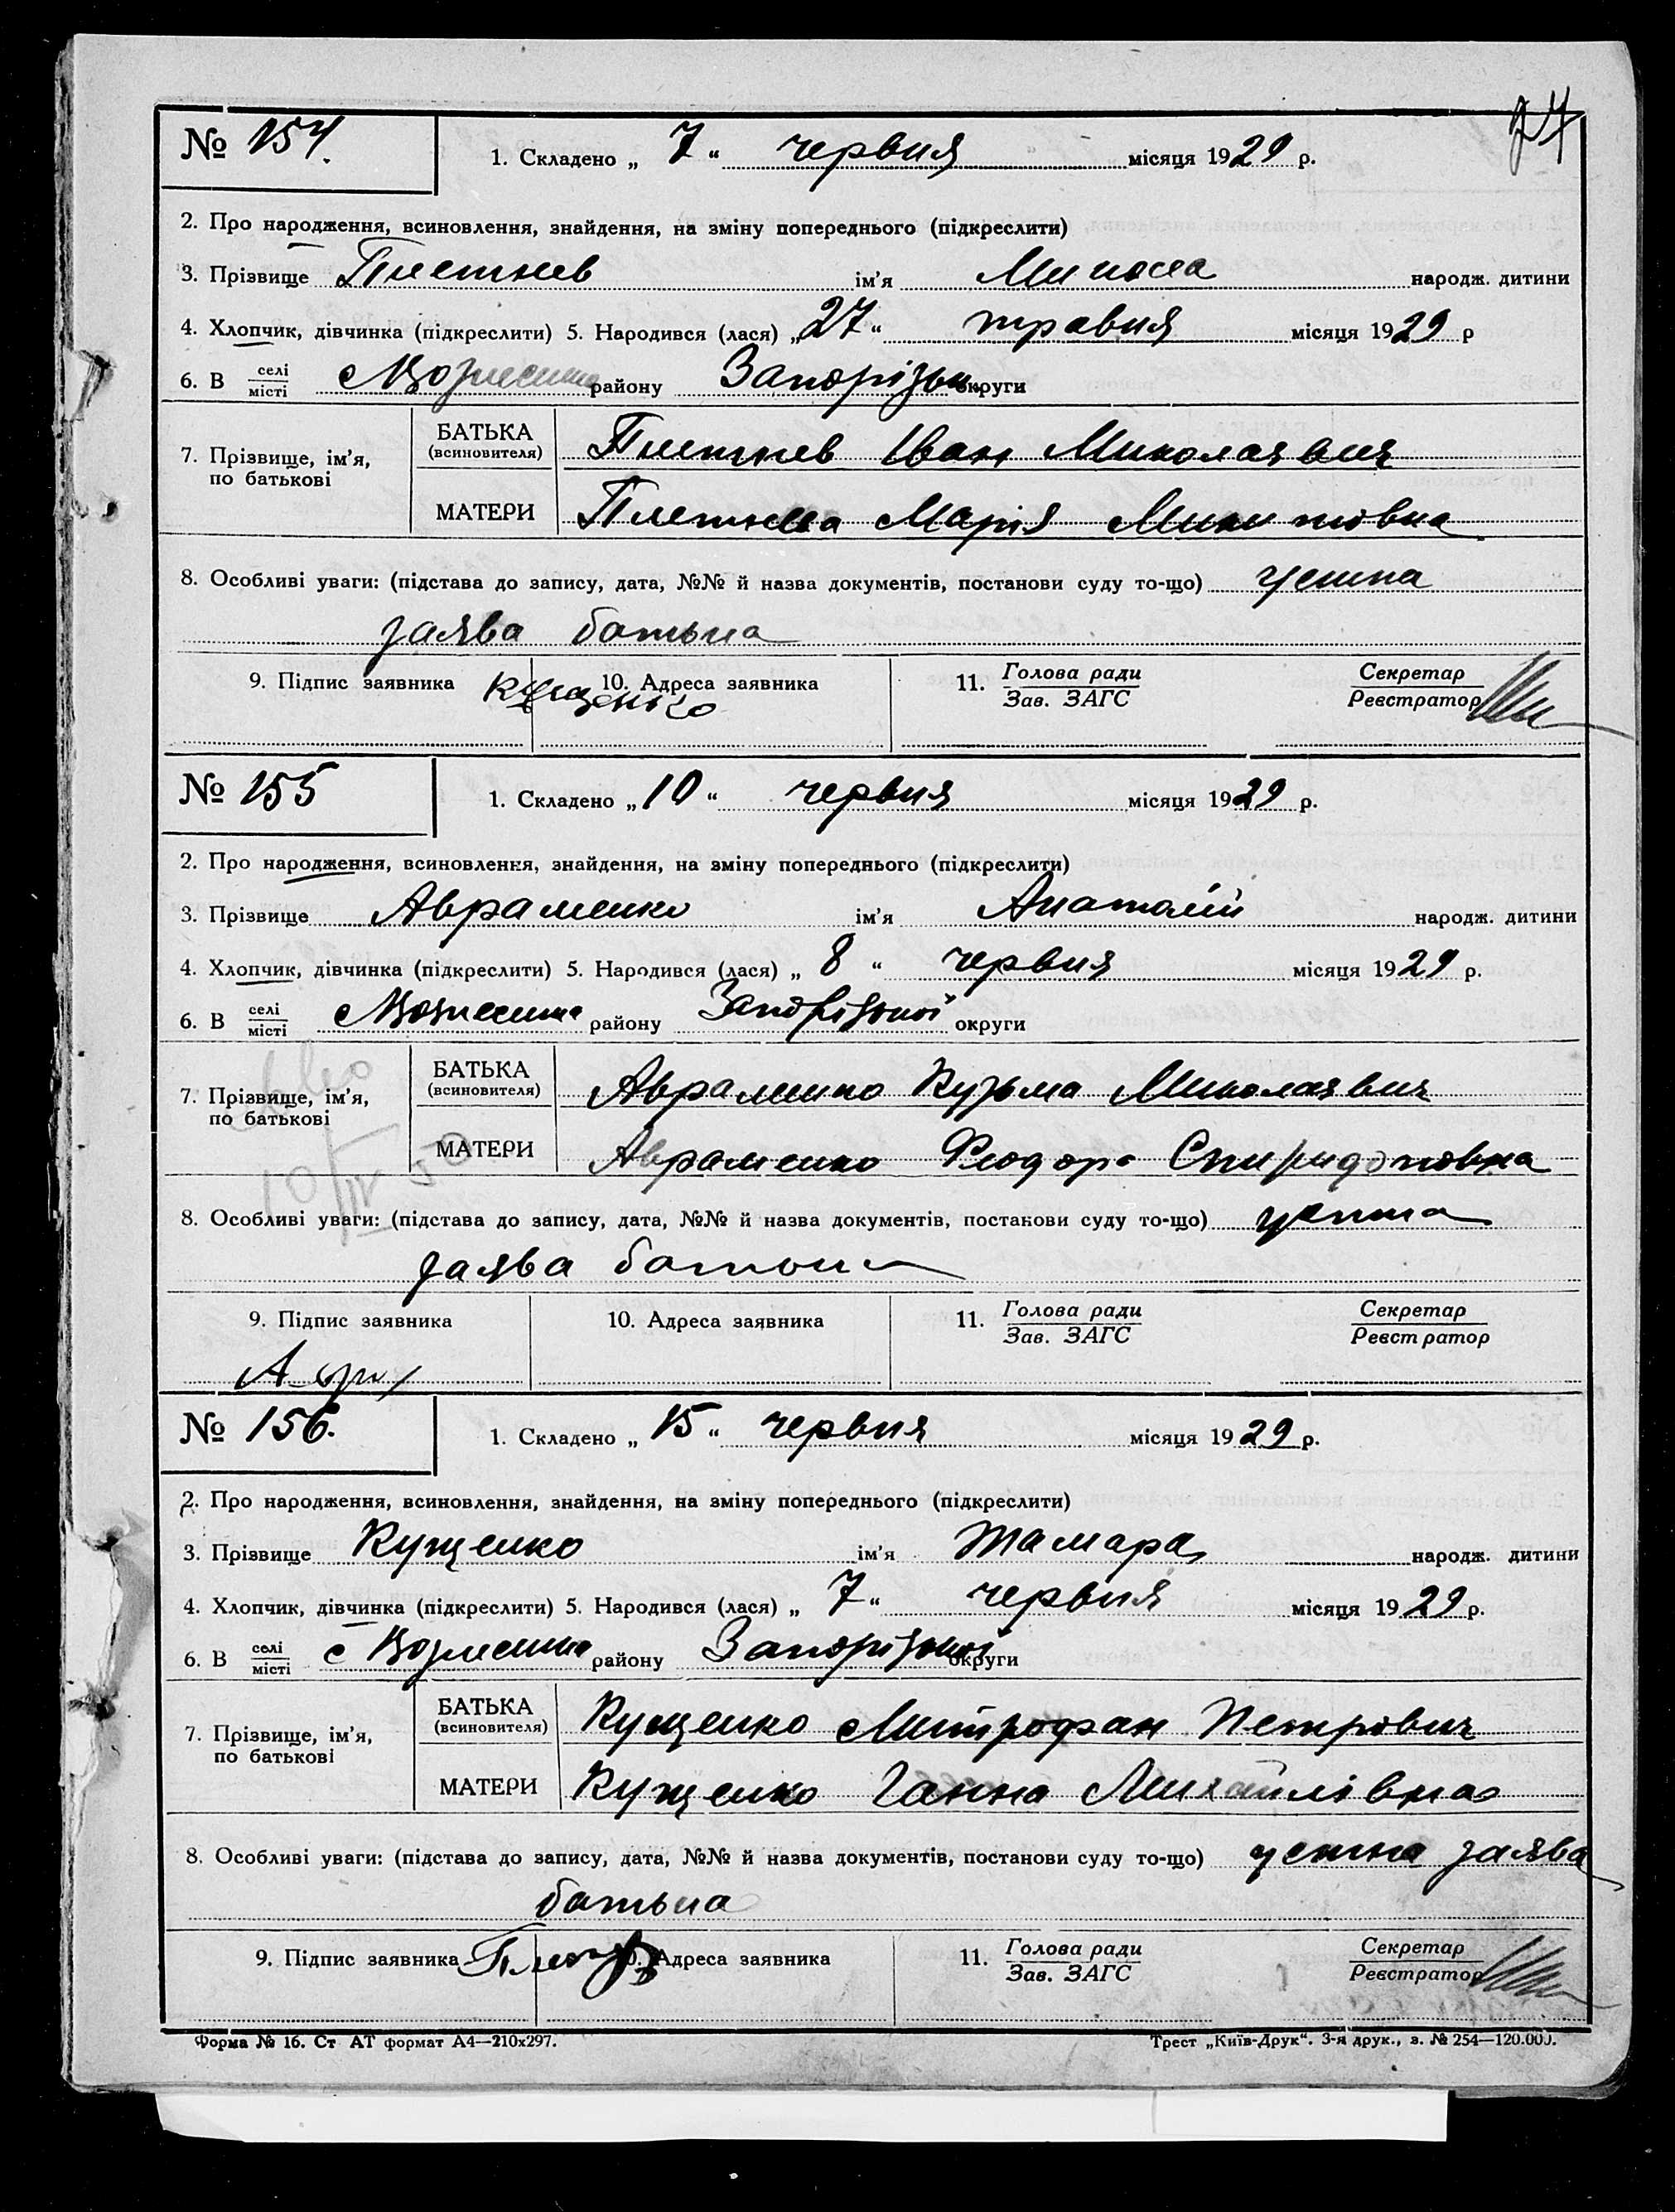 24
№ 154. 1. Складено „ 7 “ червня місяця 1929 р.
2. Про народження, всиновлення, знайдення, на зміну попереднього (підкреслити)
3. Прізвище Плетнев ім'я Микола народж. дитини
4. Хлопчик, дівчинка (підкреслити) 5. Народився (лася) „ 27 “ травня місяця 1929 р
6. В селі/місті с Вознесенка району Запорізьк. округи
7. Прізвище, ім'я, по батькові
БАТЬКА (всиновителя) Плетнев Іван Миколаявич
МАТЕРИ Плетнева Марія Микитовна
8. Особливі уваги: (підстава до запису, дата, №№ й назва документів, постанови суду то-що) усна
заява батька
9. Підпис заявника Кущенко 10. Адреса заявника 11. Голова ради/Зав. ЗАГС Секретар/Реєстратор
№ 155 1. Складено „ 10 “ червня місяця 1929 р.
2. Про народження, всиновлення, знайдення, на зміну попереднього (підкреслити)
3. Прізвище Авраменко ім'я Анатолій народж. дитини
4. Хлопчик, дівчинка (підкреслити) 5. Народився (лася) „ 8 “ червня місяця 1929 р.
6. В селі/місті с Вознесенка району Запорізької округи
7. Прізвище, ім'я, по батькові
БАТЬКА (всиновителя) Авраменко Кузьма Миколаявич
МАТЕРИ Авраменко Феодора Спиридоновна
10/IV 50
8. Особливі уваги: (підстава до запису, дата, №№ й назва документів, постанови суду то-що) усна
заява батька
9. Підпис заявника 10. Адреса заявника 11. Голова ради/Зав. ЗАГС Секретар/Реєстратор
№ 156. 1. Складено „ 15 “ червня місяця 1929 р.
2. Про народження, всиновлення, знайдення, на зміну попереднього (підкреслити)
3. Прізвище Кущенко ім'я Тамара народж. дитини
4. Хлопчик, дівчинка (підкреслити) 5. Народився (лася) „ 7 “ червня місяця 1929 р.
6. В селі/місті с Вознесенка району Запорізької округи
7. Прізвище, ім'я, по батькові
БАТЬКА (всиновителя) Кущенко Митрофан Петрович
МАТЕРИ Кущенко Ганна Михайлівна
8. Особливі уваги: (підстава до запису, дата, №№ й назва документів, постанови суду то-що) усна заява
батька
9. Підпис заявника 10. Адреса заявника 11. Голова ради/Зав. ЗАГС Секретар/Реєстратор
Форма № 16. Ст АТ формат А4—210х297. Трест „Київ-Друк“. 3-я друк., з. № 254—120.000.